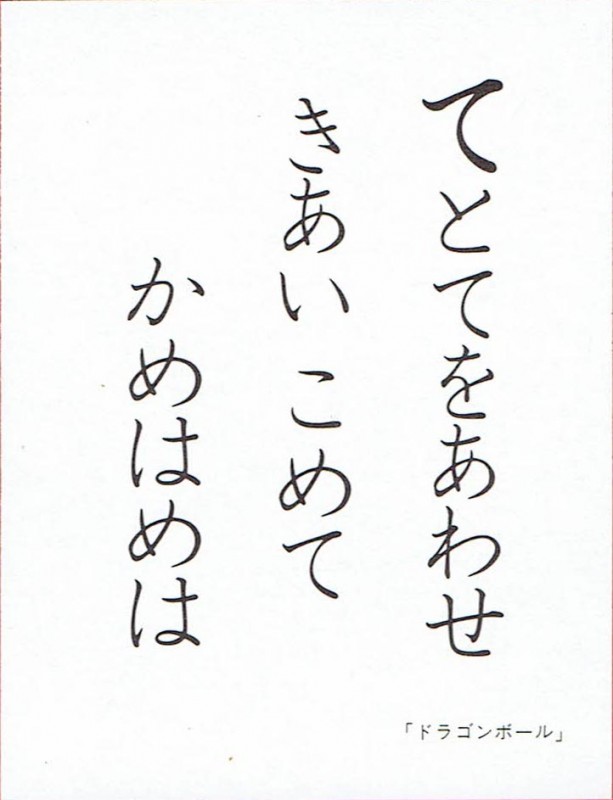 てとてをあわせ
きあい こめて
かめはめは
「ドラゴンボール」